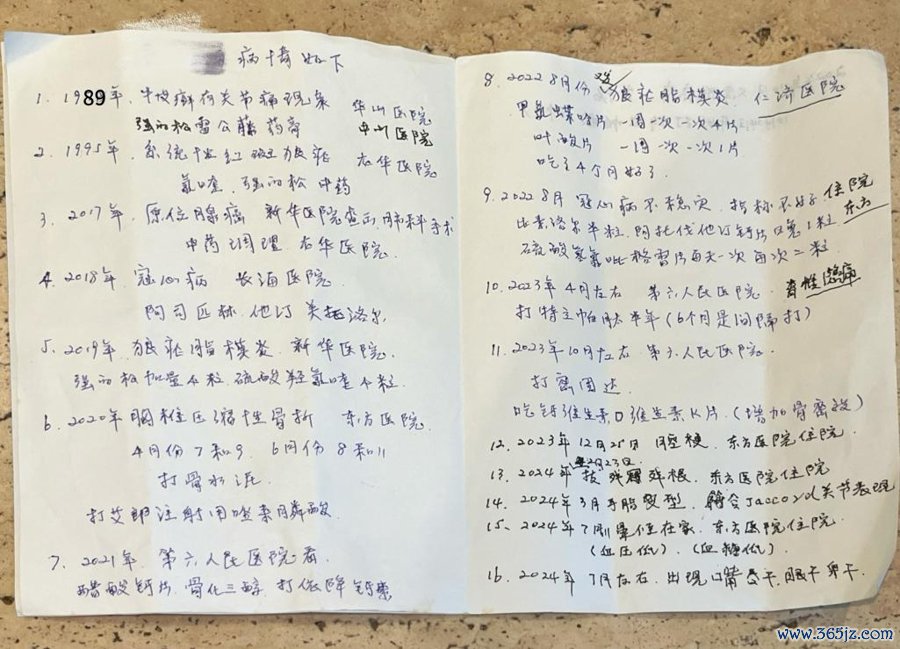 病情如下
1. 1989年. 牛皮癣有关节痛现象 华山医院
强的松雪公藤 药膏 中山医院
2. 1995年. 系统性红斑狼疮 龙华医院
氯喹. 强的松 中药
3. 2017年. 原位腺癌 新华医院查出,肺科手术
中药调理. 龙华医院.
4. 2018年 冠心病 长海医院
阿司匹林. 他汀 美托洛尔
5. 2019年. 狼疮脂膜炎. 新华医院.
强的松加量4粒. 硫酸羟氯喹4粒.
6. 2020年 胸椎压缩性骨折 东方医院.
4月份7和9. 6月份8和11
打骨水泥.
打艾郎注射用唑来膦酸.
7. 2021年. 第六人民医院看
醋酸钙片. 骨化三醇. 打依降钙素
8. 2022 8月份 狼疮脂膜炎 仁济医院
甲氨蝶呤片 一周一次一次4片
叶酸片 一周一次一次1片
吃了4个月好了.
9. 2022 8月 冠心病不稳定. 指标不好 住院 东方
比索洛尔半粒. 阿托伐他汀钙片 1粒.
硫酸氢氯吡格雷片每天一次 每次二粒
10. 2023年4月左右 第六人民医院. 脊椎
打特立帕肽半年(6个月是间隔打)
11. 2023年10月左右 第六人民医院.
打密固达
吃钙维生素D维生素K片.(增加骨密度)
12. 2023年12月25日 腔梗. 东方医院住院.
13. 2024年2月23日. 拔残冠残根. 东方医院住院
14. 2024年3月手指变型. 符合Jaccoud关节表现
15. 2024年7月 晕住在家. 东方医院住院.
(血压低).(血糖低).
16. 2024年7月左右. 出现口干.眼干.鼻干.
www.365jz.com